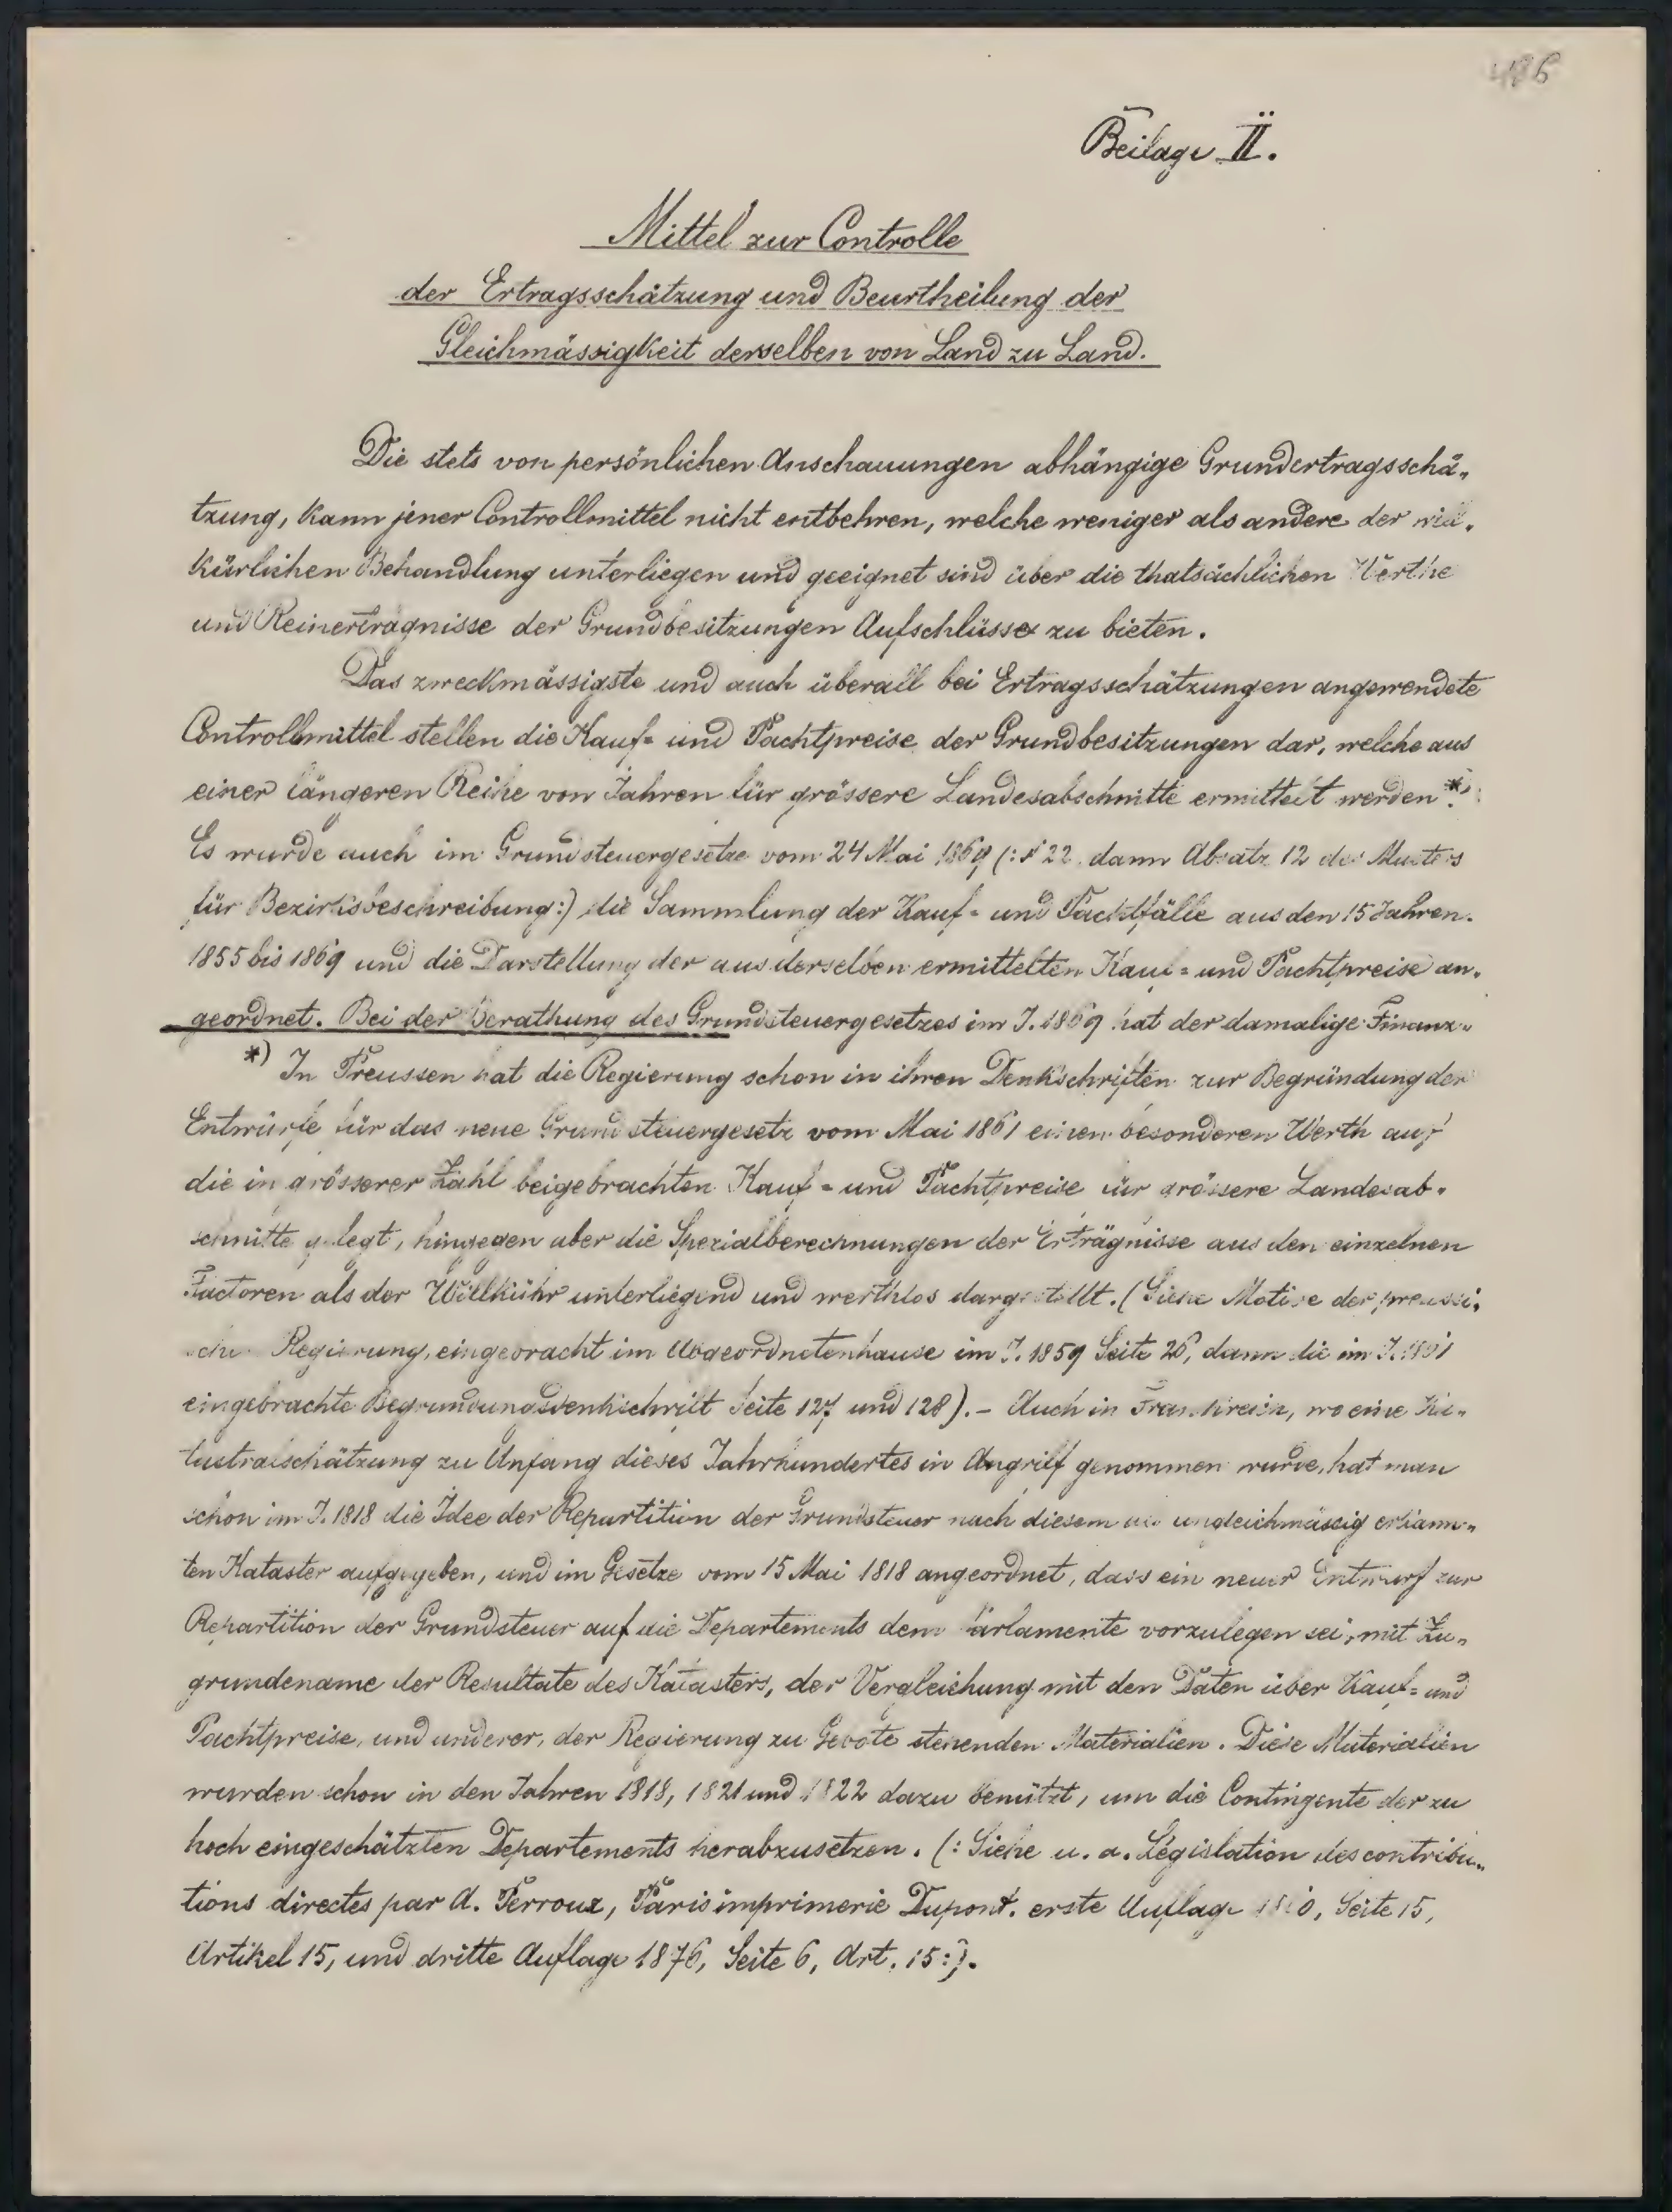 486
Beilage II.
Mittel zur Controlle
der Ertragsschätzung und Beurtheilung der
Gleichmässigkeit derselben von Land zu Land.
Die stets von persönlichen Anschauungen abhängige Grundertragsschä„
tzung, kann jener Controllmittel nicht entbehren, welche weniger als andere der will„
kürlichen Behandlung unterliegen und geeignet sind über die thatsächlichen Werthe
und Reinerträgnisse der Grundbesitzungen Aufschlüsse zu bieten.
Das zweckmässigste und auch überall bei Ertragsschätzungen angewendete
Controllmittel stellen die Kauf= und Pachtpreise der Grundbesitzungen dar, welche aus
einer längeren Reihe von Jahren für grössere Landesabschnitte ermittelt werden *)
Es wurde auch im Grundsteuergesetze vom 24 Mai 1869 (: § 22. dann Absatz 12 des Musters
für Bezirksbeschreibung :) die Sammlung der Kauf= und Pachtfälle aus den 15 Jahren
1855 bis 1869 und die Darstellung der aus derselben ermittelten Kauf= und Pachtpreise an„
geordnet. Bei der Berathung des Grundsteuergesetzes im J. 1869 hat der damalige Finanz„
*) In Preussen hat die Regierung schon in ihren Denkschriften zur Begründung der
Entwürfe für das neue Grundsteuergesetz vom Mai 1861 einen besonderen Werth auf
die in grösserer Zahl beigebrachten Kauf= und Pachtpreise für grössere Landesab„
schnitte gelegt, hingegen aber die Spezialberechnungen der Erträgnisse aus den einzelnen
Factoren als der Willkühr unterliegend und werthlos dargestellt. (Siehe Motive der preussi„
schen Regierung, eingebracht im Abgeordnetenhause im J. 1859 Seite 26, dann die im J. 1861
eingebrachte Begründungsdenkschrift Seite 127 und 128). – Auch in Frankreich, wo eine Ka„
tastralschätzung zu Anfang dieses Jahrhundertes in Angriff genommen wurde, hat man
schon im J. 1818 die Idee der Repartition der Grundsteuer nach diesem als ungleichmässig erkann„
ten Kataster aufgegeben, und im Gesetze vom 15 Mai 1818 angeordnet, dass ein neuer Entwurf zur
Repartition der Grundsteuer auf die Departements dem Parlamente vorzulegen sei, mit Zu„
grundename der Resultate des Katasters, der Vergleichung mit den Daten über Kauf= und
Pachtpreise, und anderer, der Regierung zu Gebote stehenden Materialien. Diese Materialien
wurden schon in den Jahren 1818, 1821 und 1822 dazu benützt, um die Contingente der zu
hoch eingeschätzten Departements herabzusetzen. (: Siehe u. a. Législation des contribu„
tions directes par A. Perroux, Paris imprimerie Dupont. erste Auflage Seite 15,
Artikel 15, und dritte Auflage 1876, Seite 6, Art. 15 :).